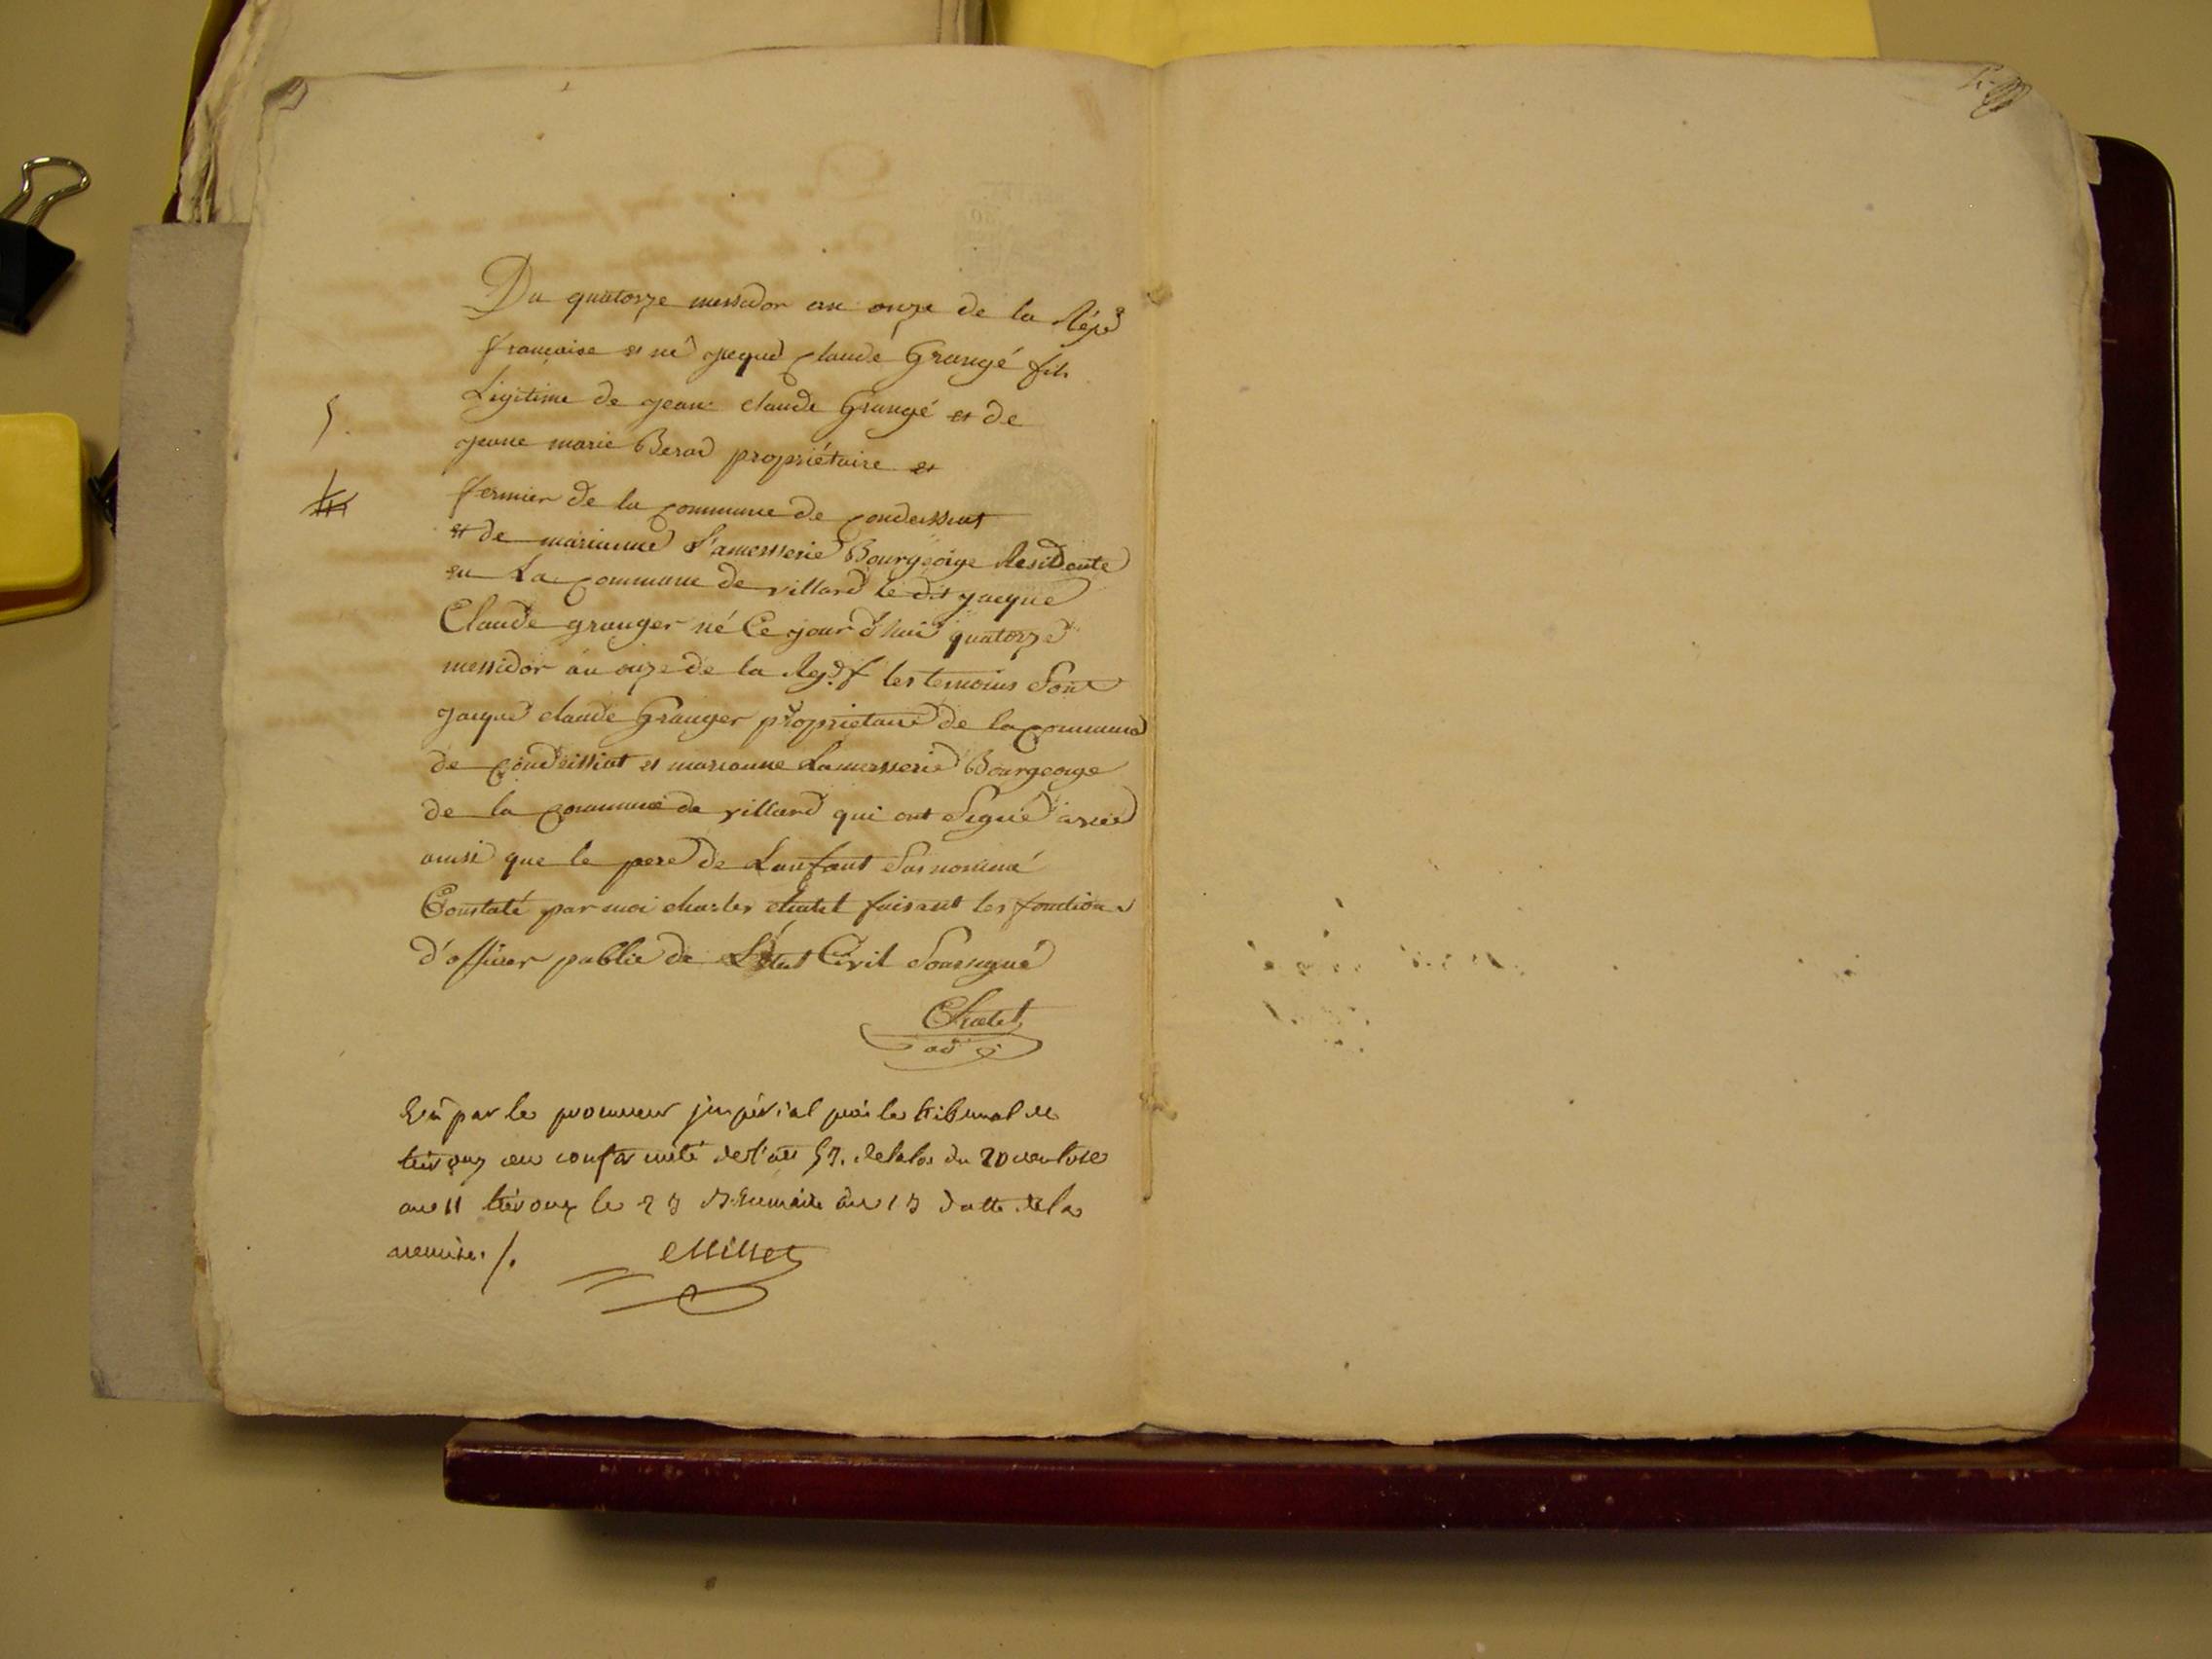 Du quatorze messidor an onze de la Rép.
francaise est né jaque Claude Grangé fils
Légitime de jean claude Grangé et de
jeane marie Berad propriétaire et
fermier de la Commune de Condeissiat
et de marianne Lamesserie Bourgeoise Residente
en La Commune de villard le dit jacque
Claude granger né Ce jour d'hui quatorze
messidor an onze de la Rep. f les temoins Sont
jaque claude Granger propriétaire de la Commune
de Condeissiat et marianne Lamesserie Bourgeoise
de la Commune de villard qui ont Signé
ainsi que le pere de Lenfant Susnommé
Constaté par moi charles chatel faisant les fonctions
d'officier public de L'état Civil Soussigné
Chatel
adj
Vu par le procureur impérial près le tribunal de
trévoux en conformité de l'art 57. de la loi du 20 ventose
an 11 trévoux le 23 Brumaire an 13 datte de la
remise ./.
Millet